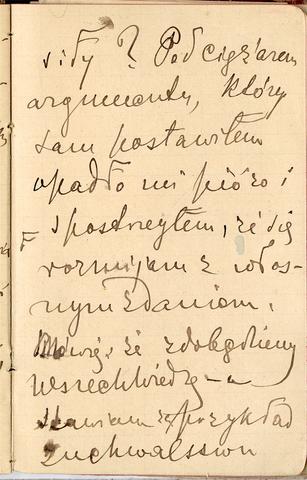 sidy? Pod ciężarem
argumentu, który
sam postawiłem
opadło mi pióro i
spostrzegłem, że się
rozmijam z włas-
nym zdaniem.
Mówię, że zdobędziemy
wszechwiedzę - a
stawiam za przykład
zuchwalstwu